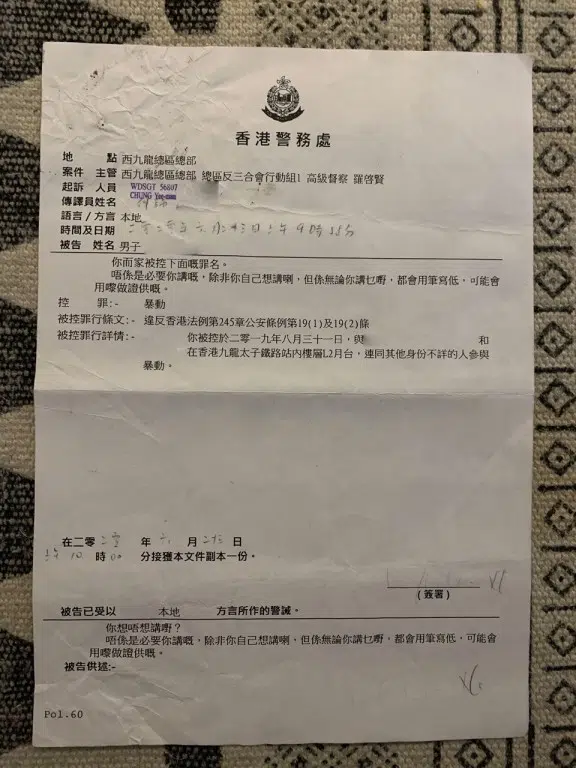 香港警務處
地 點 西九龍總區總部
案件 主管 西九龍總區總部 總區反三合會行動組1 高級督察 羅啓賢
起訴 人員 WDSGT 56807
CHUNG
傳譯員姓名
語言/方言 本地
時間及日期 二零二零年六月廿三日上午9時55分
被告 姓名 男子
你而家被控下面嘅罪名。
唔係是必要你講嘅,除非你自己想講喇,但係無論你講乜嘢,都會用筆寫低,可能會
用嚟做證供嘅。
控 罪:- 暴動
被控罪行條文:- 違反香港法例第245章公安條例第19(1)及19(2)條
被控罪行詳情:- 你被控於二零一九年八月三十一日,與 和
在香港九龍太子鐵路站內樓層L2月台,連同其他身份不詳的人參與
暴動。
在二零二零 年 六 月 廿三 日
上午 10 時 00 分接獲本文件副本一份。
(簽署)
被告已受以 本地 方言所作的警誡。
你想唔想講嘢?
唔係是必要你講嘅,除非你自己想講喇,但係無論你講乜嘢,都會用筆寫低,可能會
用嚟做證供嘅。
被告供述:-
Pol.60